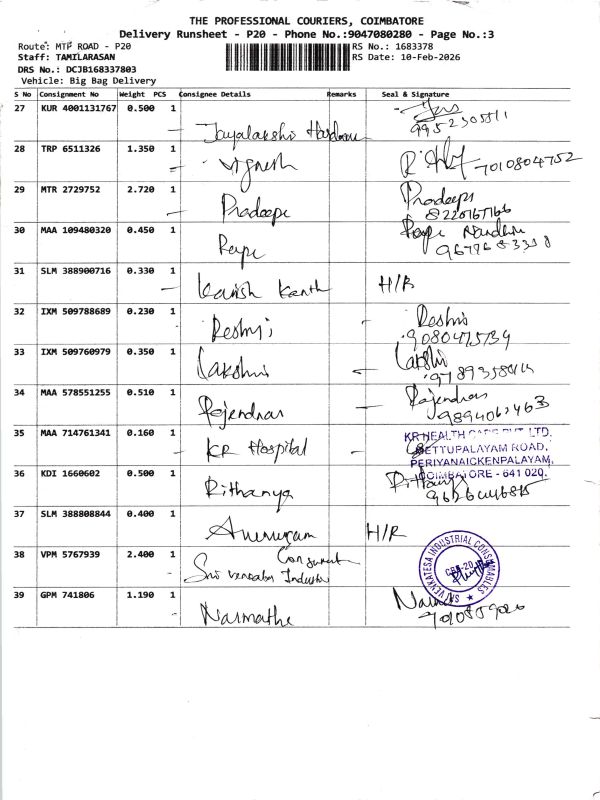 THE PROFESSIONAL COURIERS, COIMBATORE
Delivery Runsheet - P20 - Phone No.:9047080280 - Page No.:3
Route: MTP ROAD - P20 RS No.: 1683378
Staff: TAMILARASAN RS Date: 10-Feb-2026
DRS No.: DCJB168337803
Vehicle: Big Bag Delivery
S No Consignment No Weight PCS Consignee Details Remarks Seal & Signature
27 KUR 4001131767 0.500 1
28 TRP 6511326 1.350 1 Vignesh 7010804752
29 MTR 2729752 2.720 1 Pradeepe Pradeeps
30 MAA 109480320 0.450 1
31 SLM 388900716 0.330 1 Kanth H/R
32 IXM 509788689 0.230 1 Reshmi Reshmi
33 IXM 509760979 0.350 1 Lakshmi Lakshmi
34 MAA 578551255 0.510 1 Rajendran Rajendran
35 MAA 714761341 0.160 1 KR Hospital
KR HEALTH CARE PVT. LTD.
METTUPALAYAM ROAD,
PERIYANAICKENPALAYAM,
COIMBATORE - 641 020.
36 KDI 1660602 0.500 1 Rithanya
37 SLM 388808844 0.400 1 H/R
38 VPM 5767939 2.400 1 SRI VENKATESA INDUSTRIAL CONSUMABLES
CBE-20
39 GPM 741806 1.190 1 Narmathe